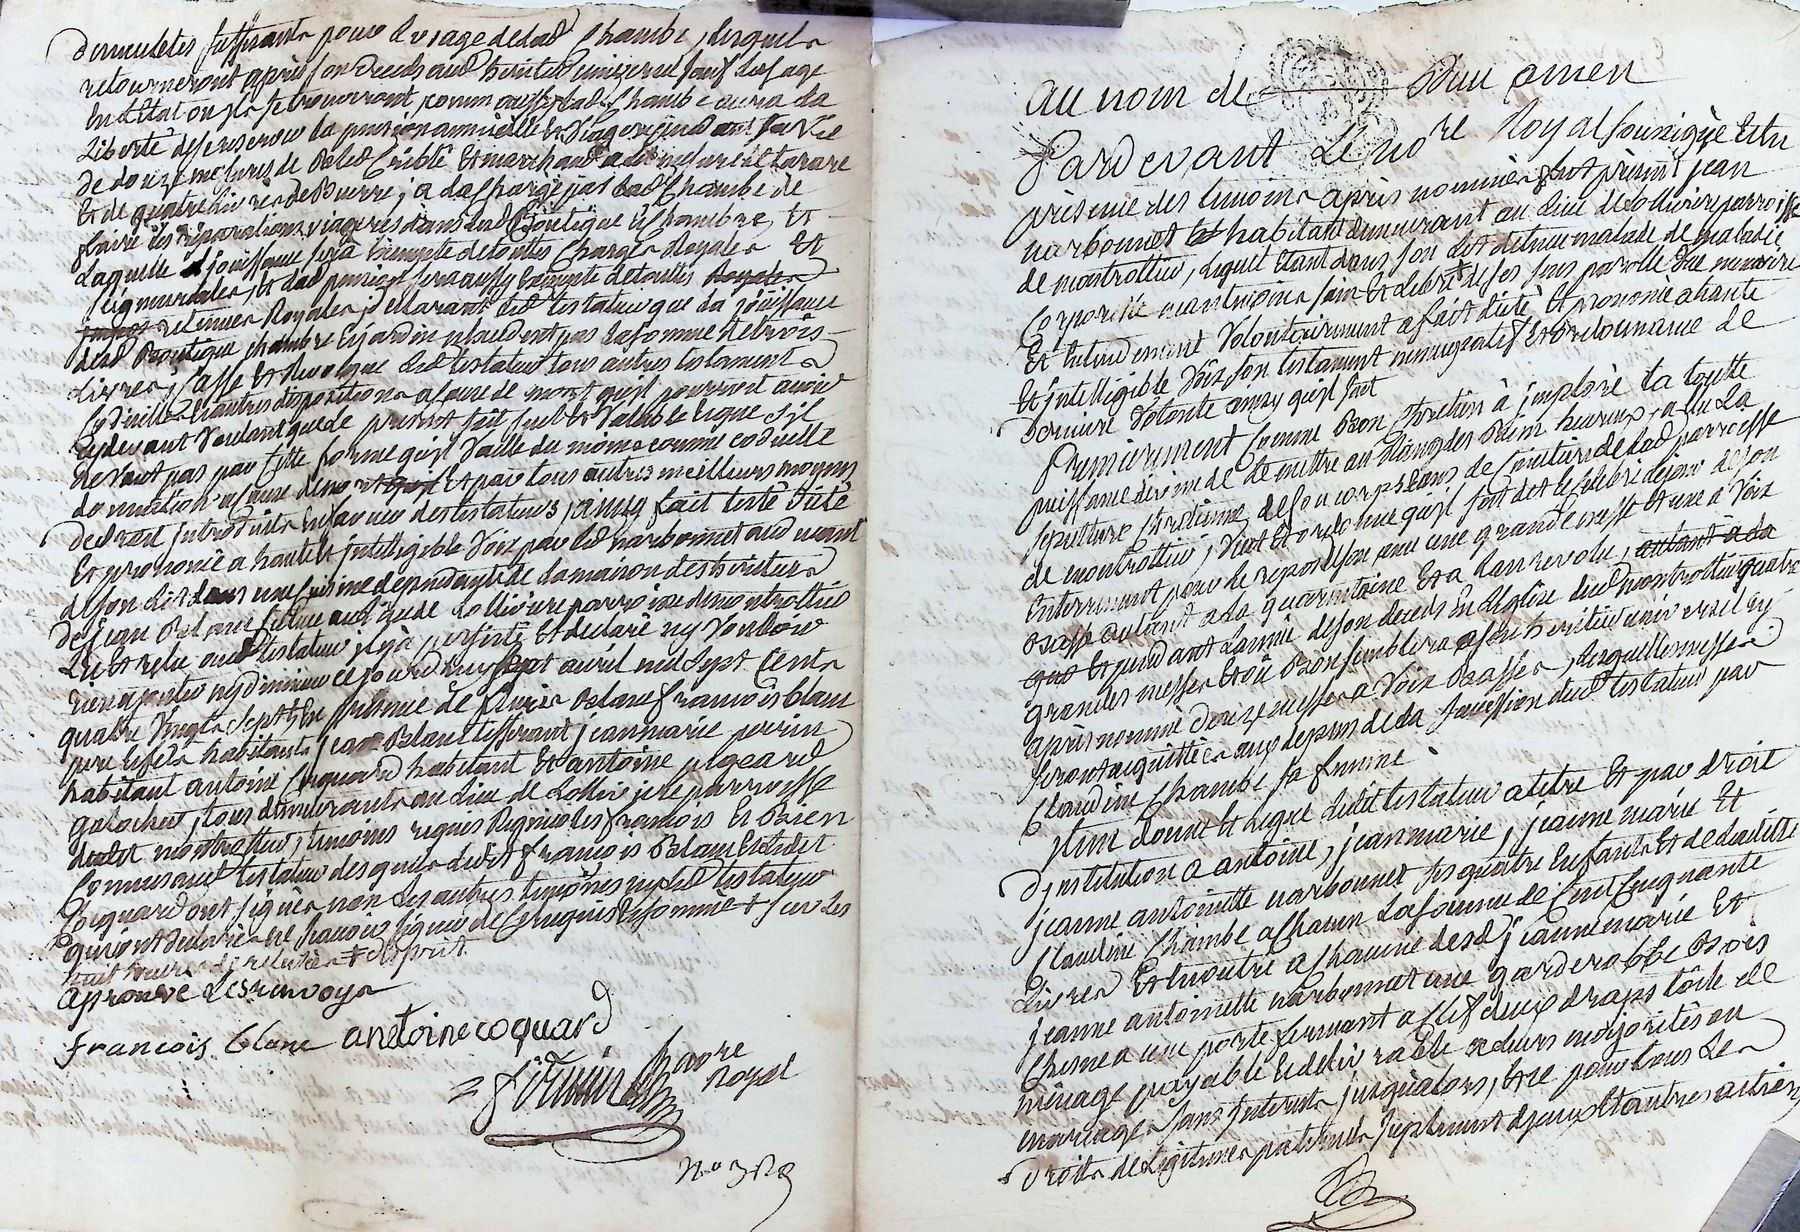 de meubles suffisants pour l'usage de lad chambe, lesquels
retourneront après son deceds aud heritier universel sauf l'usage
en l'Etat ou ils se trouveront, comm aussy lad chambe aura la
Liberté de se reserver la pension annuelle et viagere pend sa vie
de douze mesures de Bled Seigle et marchand a la mesure de tarare
Et de quatre Livres de Beurre, a la charge par lad chambe de
faire les reparations viageres dans lad Boutique et chambre, Et
Laquelle jouissance sera exempte de touttes charges Royales Et
seigneuriales, et lad pension sera aussy exempte de touttes Royales
retenues Royales, declarant led testateur que la jouissance
desd Boutique chambre et jardin n'excedent pas la somme de trois
Livres, Casse et revoque led testateur tous autres testaments
codicilles et autres dispositions a cause de mort qu'il pourroit avoir
cydevant Voulant que le present soit seul Et Valable et que s'il
ne Vaut pas par cette forme qu'il Vaille du moins comme codicille
donnation a cause de mort et par tous autres meilleurs moyens
de droit introduits en faveur des testateurs, ainsy fait testé dicté
Et prononcé a haute et intelligible Voix par led narbonnet aud
de son lit dans une cuisine dependante de la maison des heritiers
de jean Blanc situee aud lieu de Lolliviere parroisse de montrottier
Lu et relu aud testateur il y a persisté Et declaré n'y Vouloir
rien ajouter ny diminuer ce jourdhuy sept avril mil sept cents
quatre Vingts sept En presence de Blanc francois blanc
pere et fils habitants jean Blanc tisserant jean marie perrin
habitant antoine Coquard habitant Et antoine pigeard
galocher, tous demeurants au Lieu de Lolliviere parroisse
dudit montrottier, temoins requis Regnicoles francois Et Bien
connus aud testateur desquels ledit francois Blanc Et ledit
Coquard ont signés non les autres temoins ny led testateur
qui ont declarés ne savoir signer de ce requis et sommé + sur les
huit heures de relevée + d'esprit.
aprouvé Les renvoys
francois blanc antoine coquard
nore
Royal
No 318
au nom de Dieu amen
Pardevant Le nore Royal soussigné Et en
presence des temoins après nommés fut present jean
narbonnet habitant demeurant au lieu de Lolliviere parroisse
de montrottier, lequel etant dans son lit detenu malade de maladie
corporelle neantmoins sain Et libre de ses sens parolle Vue memoire
Et Entendement Volontairement a fait dicté Et prononcé a haute
Et intelligible Voix son testament nuncupatif Et ordonnance de
derniere Volonte ainsy qu'il suit
Premierement comme Bon chretien à imploré la toutte
puissance divine de le mettre au Rang des Bien heureux, a elu La
sepulture chretienne de son corps dans le cimetiere de lad parroisse
de montrottier, Veut Et ordonne qu'il soit dit et celebré le jour de son
Enterrement pour le repos de son ame une grande messe Et une à Voix
Basse autant a la quarantaine Et a l'an revolu, autant à la
que Et pendant Lannée de son deceds En L'Eglise dud montrottier quatre
grandes messes Et où Bon semblera a son heritier universel cy
après nommé douze messes a Voix Basses, Lesquelles messes
seront acquittées aux depens de la succession dud testateur par
Claudine Chambe sa femme
Item donne Et Legue ledit testateur a titre Et par droit
d'institution a antoine, jean marie, jeanne marie Et
jeanne antoinette narbonnet ses quatre Enfants Et de ladite
Claudine Chambe a chacun La somme de Cent Cinquante
Livres Et en outre a chacune desd jeanne marie Et
jeanne antoinette narbonnet une garderobbe Bois
chesne a une porte fermant a clef deux draps toile de
menage payable Et delivrable a leurs majorités ou
mariages sans interests jusqu'alors, Et ce pour tous Les
droits de Legitimes paternels suplement d'iceux Et autres actions